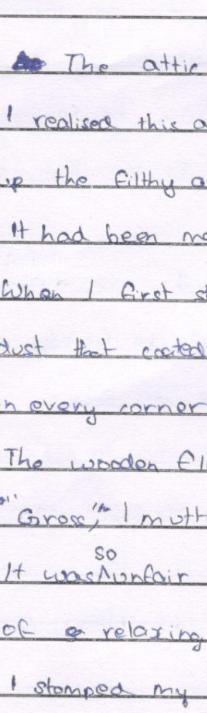 The attic
I realised this a
up the filthy a
It had been m
When I first s
dust that coated
n every corner
The wooden fl
"Gross," I mutt
It was so unfair
of a relaxing
I stomped my